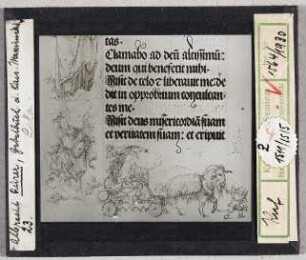 tas.
Clamabo ad deū altissimū:
deum qui benefecit mihi.
Misit de celo ⁊ liberauit me: de
dit in opprobrium conculcan-
tes me.
Misit deus misericordiā suam
et veritatem suam: et eripuit
Albrecht Dürer, Gebetbuch d. Kais. Maximilian
23.
1764/1930
2
1514/1515